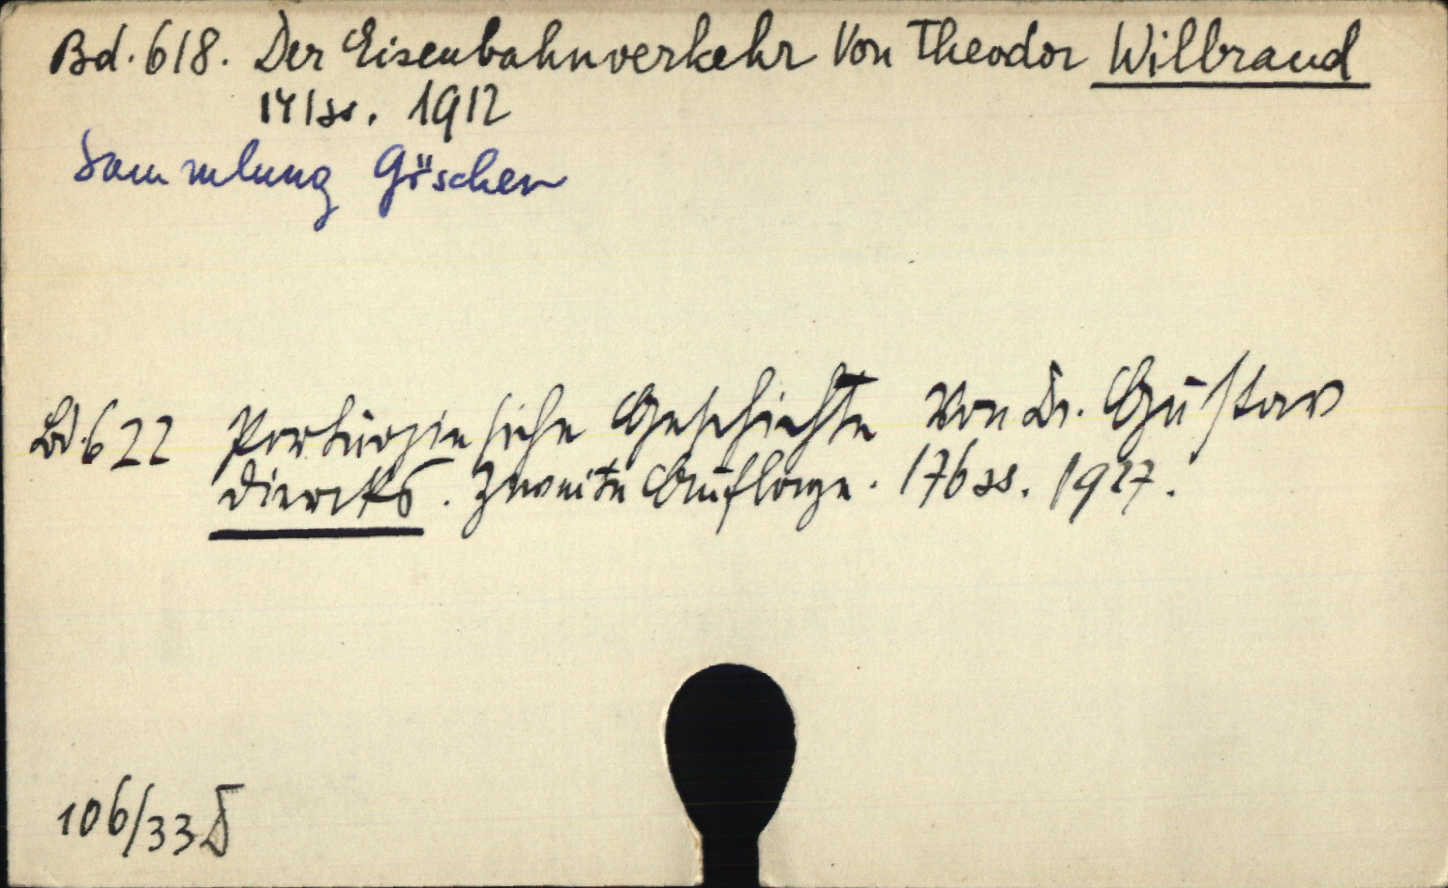 Bd. 618. Der Eisenbahnverkehr Von Theodor Wilbrand
141 ss. 1912
Sammlung Göschen
Bd. 622 Portugiesische Geschichte Von Dr. Gustav
Diercks. Zweite Auflage. 176 ss. 1927.
106/33